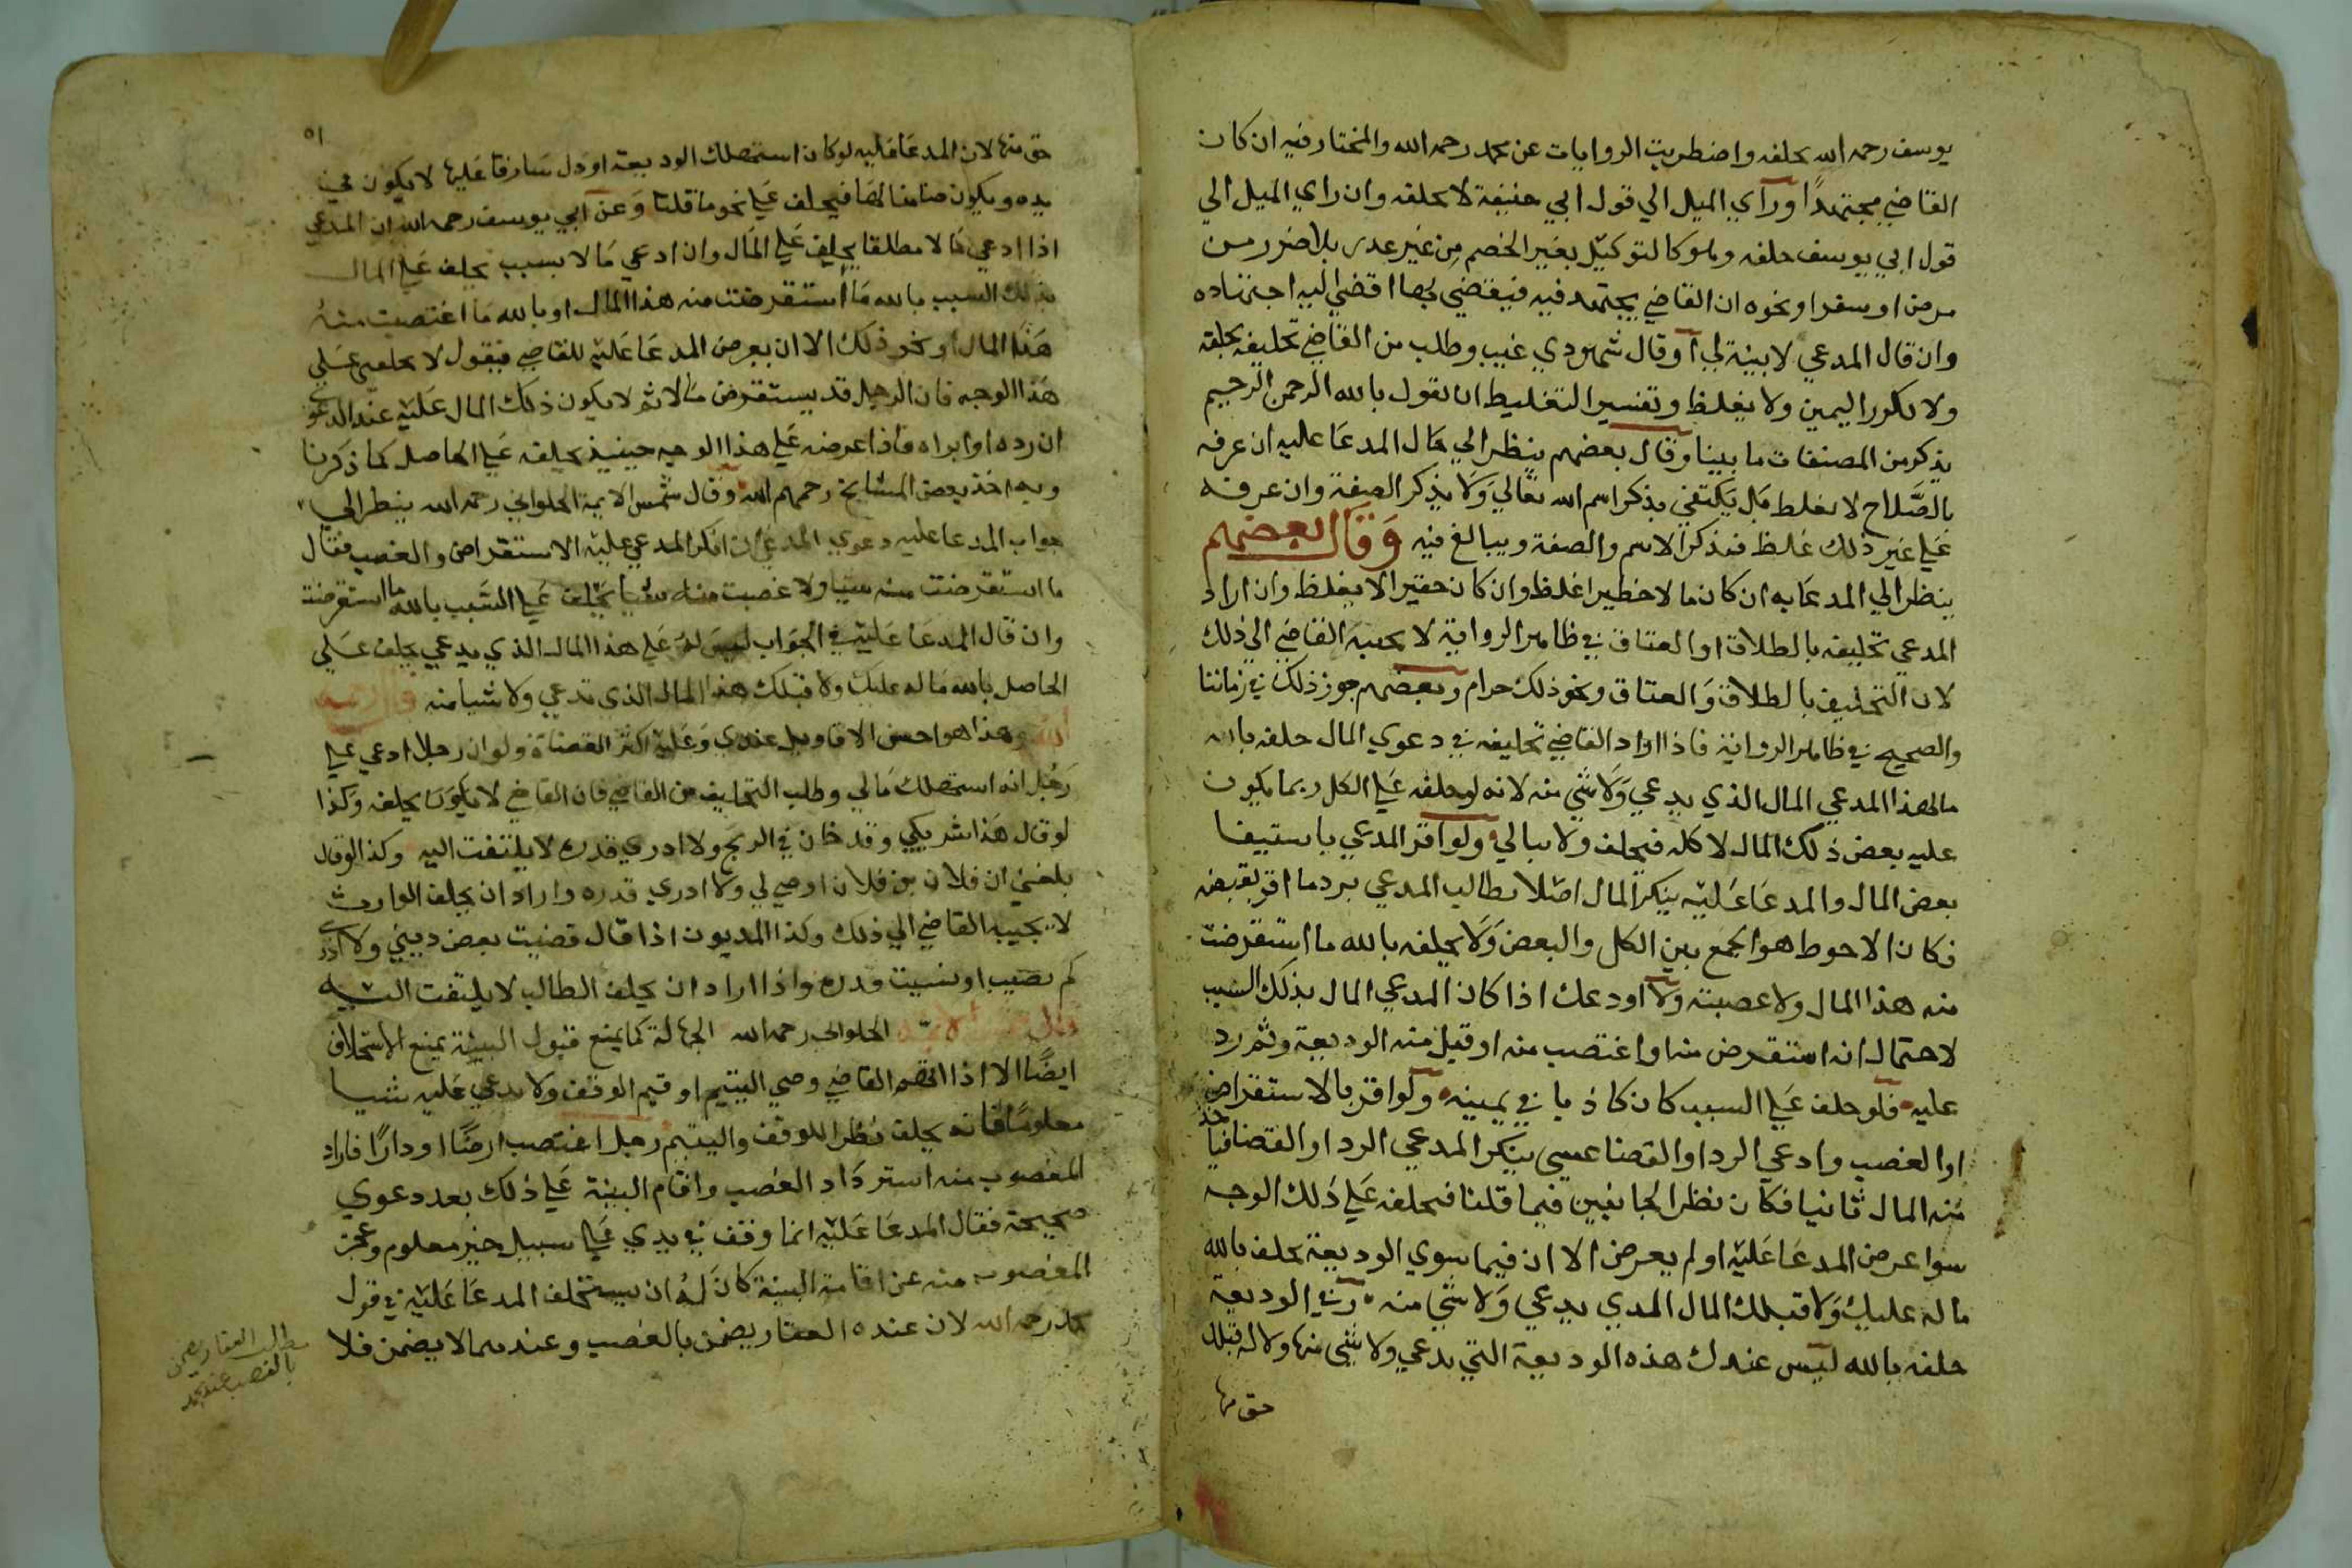 يوسف رحمه الله يحلفه واضطربت الروايات عن محمد رحمه الله والمختار فيه ان كان
القاضي مجتهدًا ورآي الميل الي قول ابي حنيفة لا يحلفه وان راي الميل الي
قول ابي يوسف حلفه وهو كالتوكيل بغير الخصم من غير عذر بلا ضرر من
مرض او سفر او نحوه ان القاضي يجتهد فيه فيقضي بما افضي اليه اجتهاده
وان قال المدعي لا بينة لي آو قال شهودي غيب وطلب من القاضي تحليفه يحلفه
ولا يكرر اليمين ولا يغلظ وتفسير التغليظ ان يقول بالله الرحمن الرحيم
يذكر من الصفات ما بينا وقال بعضهم ينظر الي حال المدعا عليه ان عرفه
بالصَّلاح لا يغلظ بَل يكتفي بذكر اسم الله تعالي وَلا يذكر الصفة وان عرفه
عَلي غير ذلك غلظ فيذكر الاسم والصفة ويبالغ فيه وَقال بعضهم
ينظر الي المدعا به ان كان مالا خطيرا غلظ وان كان حقيرا لا يغلظ وان اراد
المدعي تحليفه بالطلاق او العتاق في ظاهر الرواية لا يجيبه القاضي الي ذلك
لان التحليف بالطلاق وَالعتاق ونحو ذلك حرام وبعضهم جوز ذلك في زماننا
والصحيح في ظاهر الرواية فاذا اراد القاضي تحليفه في دعوي المال حلفه بالله
ما لهذا المدعي المال الذي يدعي وَلا شي منه لانه لو حلفه عَلي الكل ربما يكون
عليه بعض ذلك المال لا كله فيحلف ولا يبالي ولو اقر المدعي باستيفا
بعض المال والمدعَا عَليْه ينكر المال اصْلا يطالب المدعي برد ما اقر بقبضه
فكان الاحوط هو الجمع بين الكل والبعض وَلا يحلفه بالله ما استقرضت
منه هذا المال ولا غصبته ولا اودعك اذا كان المدعي المال بذلك السبب
لاحتمال انه استقرض منه او اغتصب منه او قبل منه الوديعة وثم رد
عليه فلو حلف عَلي السبب كان كاذبا في يمينه ولو اقر بالاستقراض
او الغصب وادعي الرد او القضا عسي ينكر المدعي الرد او القضا فياخذ
منه المال ثانيا فكان نظر الجانبين فيما قلنا فيحلفه عَلي ذلك الوجه
سوا عرض المدعَا عَليْه او لم يعرض الا ان فيما سوي الوديعة يحلف بالله
ما له عليك وَلا قبلك المال الذي يدعي وَلا شي منه وَفي الوديعة
حلفه بالله ليس عندك هذه الوديعة التي يدعي ولا شي منها ولا له قبلك
حق منها
٥١
حق منها لان المدعَا عَليه لو كان استهلك الوديعة او دل سَارقا عَليها لا يكون في
يده ويكون ضامنا لهَا فيحلف عَلي نحو ما قلنا وَعن ابي يوسف رحمه الله ان المدعي
اذا ادعي مَالا مطلقا يحلف عَلي المَال وان ادعي مَالا بسبب يحلف عَلي المال
بذلك السبب بالله مَا استقرضت منه هذا المال او بالله مَا اغتصبت منهُ
هَذا المال او نحو ذلك الا ان يعرض المدعَا عَليْه للقاضي فيقول لا تحلفني عَلي
هَذا الوجه فان الرجل قد يستقرض مَالا ثم لا يكون ذلك المال عَليْه عند الدعوي
ان رده او ابراه فاذا عرضه عَلي هذا الوجه حينيذ يحلفه عَلي الحاصل كما ذكرنا
وبه اخذ بعض المشايخ رحمهم الله وَقال شمس الايمة الحلواني رحمه الله ينظر الي
جواب المدعا عليه دعوي المدعي ان انكر المدعي عليْه الاستقراض والغصب فقال
ما استقرضت منه شيا ولا غصبت منه شيا يحلف عَلي السَّبب بالله ما استقرضت
وان قال المدعَا عَليْه في الجوَاب ليسَ لهُ عَلي هذا المال الذي يدعي يحلف عَلي
الحاصل بالله مَا له عليك ولا قبلك هذا المال الذي يدعي ولا شيا منه قال رحمه
الله وهذا هو احسن الاقاويل عندي وَعَليْه اكثر القضاة ولو ان رجلا ادعي علي
رَجُل انه استهلك مَالي وطلب التحليف من القاضي فان القاضي لا يحلفه وكذا
لو قال هَذا شريكي وقد خان في الربح ولا ادري قدره لا يلتفت اليه وكذا لو قال
بلغني ان فلان بن فلان اوصي لي ولا ادري قدره واراد ان يحلف الوارث
لا يجيبه القاضي الي ذلك وكذا المديون اذا قال قضيت بعض ديني ولا ادري
كم قضيت او نسيت قدره واذا اراد ان يحلف الطالب لا يلتفت اليه
قال شمس الايمة الحلواني رحمه الله الجهالة كما يمنع قبول البينة يمنع الاستحلاف
ايضًا الا اذا اتهم القاضي وصي اليتيم او قيم الوقف ولا يدعي عليه شيا
معلومًا فانه يحلف نظرا للوقف واليتيم رجل اغتصب ارضًا او دارًا فاراد
المغصوب منه استردَاد الغصب واقام البينة عَلي ذلك بعد دعوي
صحيحة فقال المدعَا عَليْه انها وقف في يدي عَلي سبيل خير معلوم وعجز
المغصوب منه عن اقامة البينة كانَ لهُ ان يستحلف المدعَا عَليْه في قول
محمد رحمه الله لان عنده العقار يضمن بالغصب وعندهما لا يضمن فلا
مطلب العقار يضمن
بالغصب عند محمد